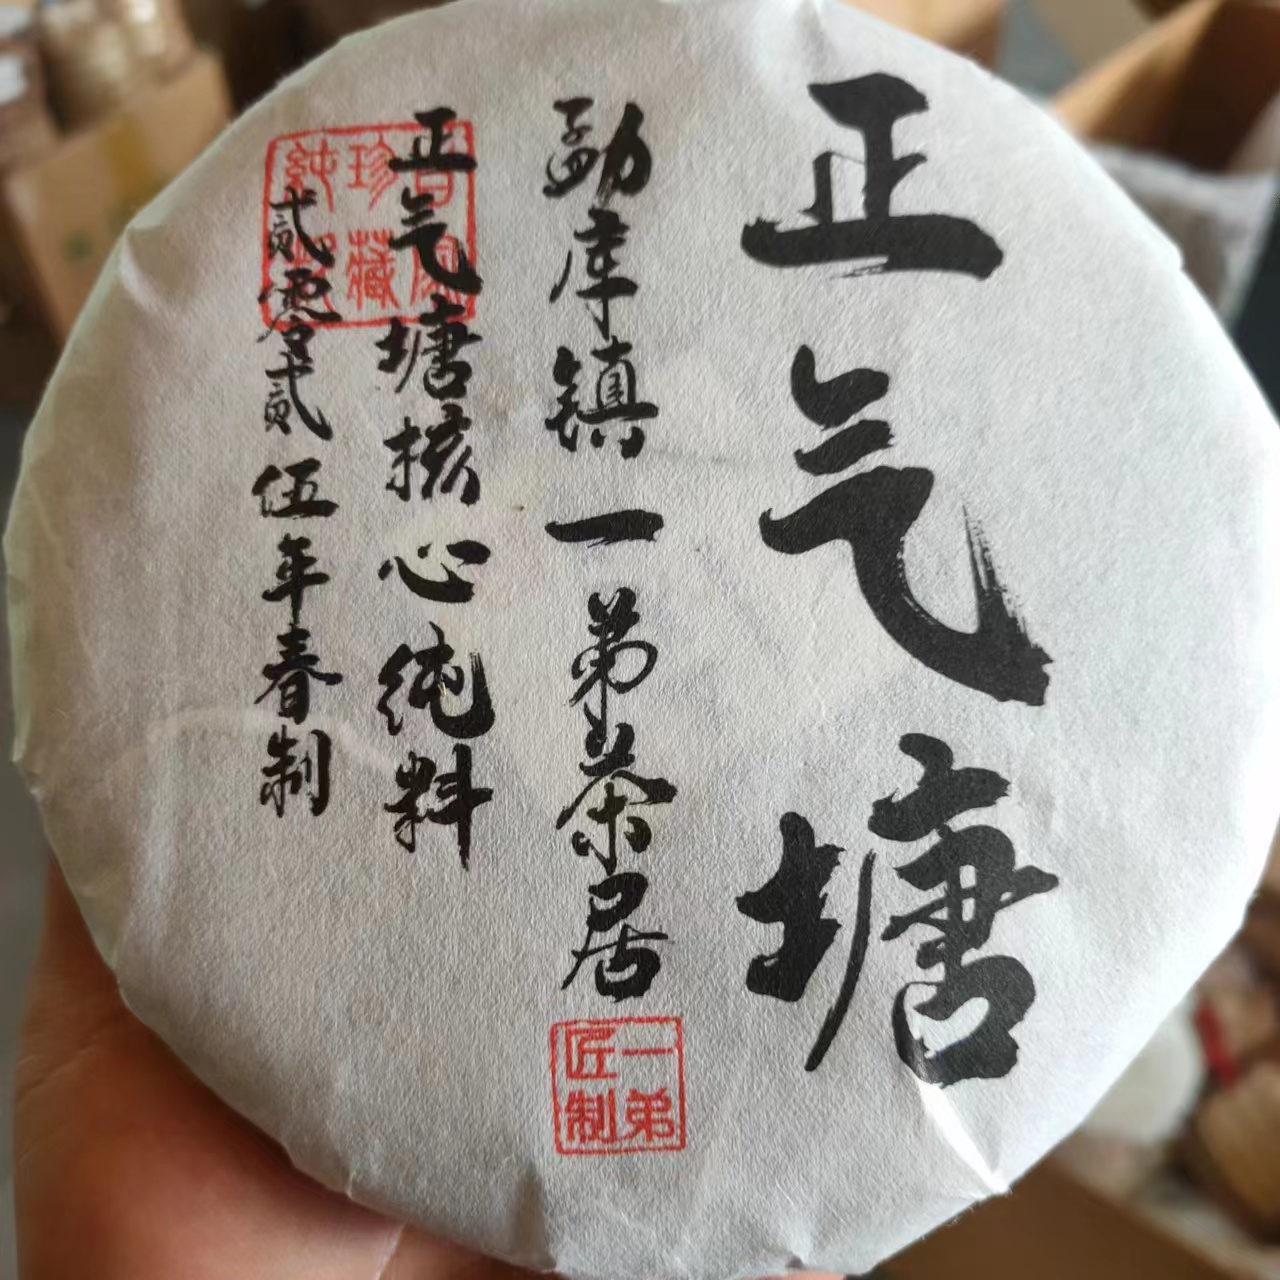 正气塘
勐库镇一弟茶居
一弟匠制
正气塘核心纯料
珍藏
纯
贰零贰伍年春制